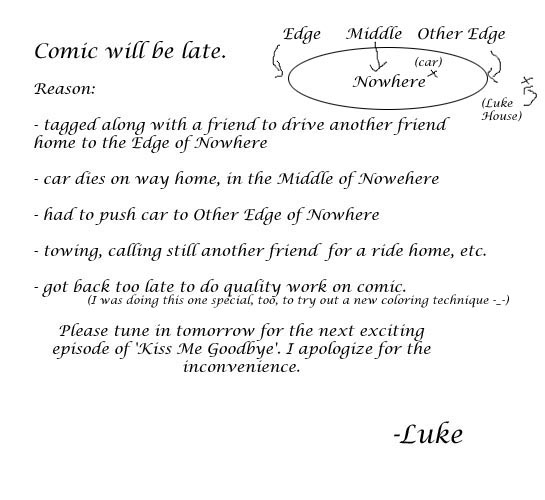 Edge Middle Other Edge
Comic will be late.
(car)
Nowhere x
Reason:
x
(Luke
House)
- tagged along with a friend to drive another friend
home to the Edge of Nowhere
- car dies on way home, in the Middle of Nowehere
- had to push car to Other Edge of Nowhere
- towing, calling still another friend for a ride home, etc.
- got back too late to do quality work on comic.
(I was doing this one special, too, to try out a new coloring technique -_-)
Please tune in tomorrow for the next exciting
episode of 'Kiss Me Goodbye'. I apologize for the
inconvenience.
-Luke